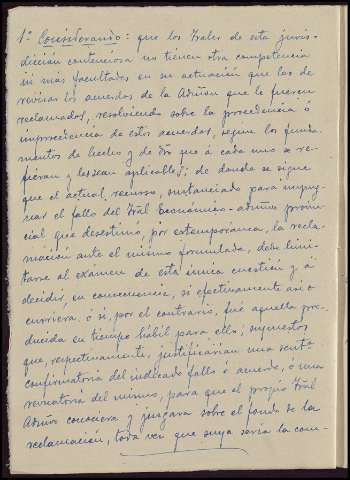 1º Considerando: que los Trales de esta juris-
dicción contenciosa no tienen otra competencia
ni más facultades en su actuación que las de
revisar los acuerdos de la Admon que le fueren
reclamados, resolviendo sobre la procedencia ó
improcedencia de estos acuerdos, según los funda-
mentos de hecho y de dro que á cada uno se re-
fieran y les sean aplicables; de donde se sigue
que el actual recurso, sustanciado para impug-
nar el fallo del Tral Económico-admvo provin-
cial que desestimó, por extemporánea, la recla-
mación ante el mismo formulada, debe limi-
tarse al examen de esta única cuestión y á
decidir, en consecuencia, si efectivamente así o-
curriera ó si, por el contrario, fué aquella pro-
ducida en tiempo hábil para ello; supuestos
que, respectivamente, justificarían una senta
confirmatoria del indicado fallo ó acuerdo, ó una
revocatoria del mismo, para que el propio Tral
Admvo conociera y juzgara sobre el fondo de la
reclamación, toda vez que suya sería la com-